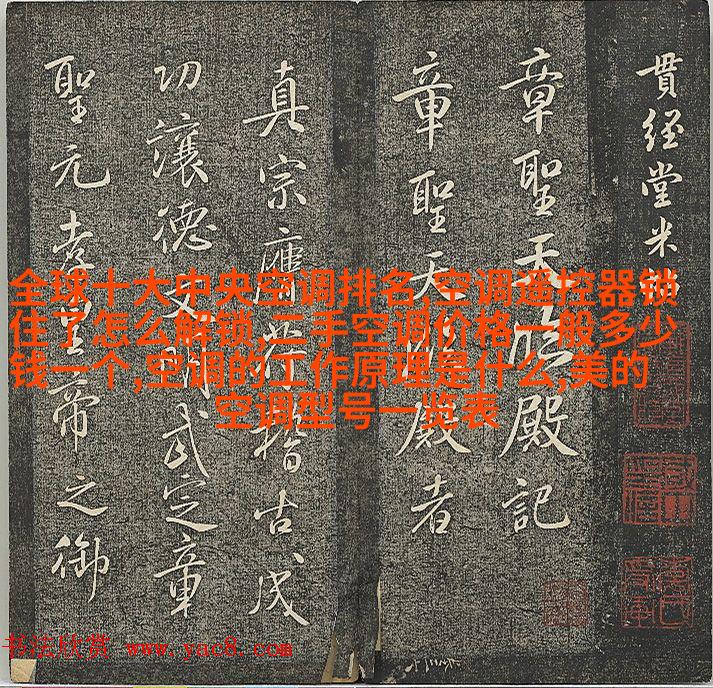 貫经堂米
章聖天臨殿記
章聖天臨殿者
真宗膺符稽古成
功讓德文明武定章
聖元孝皇帝之御
全球十大中央空调排名,空调遥控器锁
住了怎么解锁,二手空调价格一般多少
钱一个,空调的工作原理是什么,美的
空调型号一览表
书法欣赏 www.yac8.com